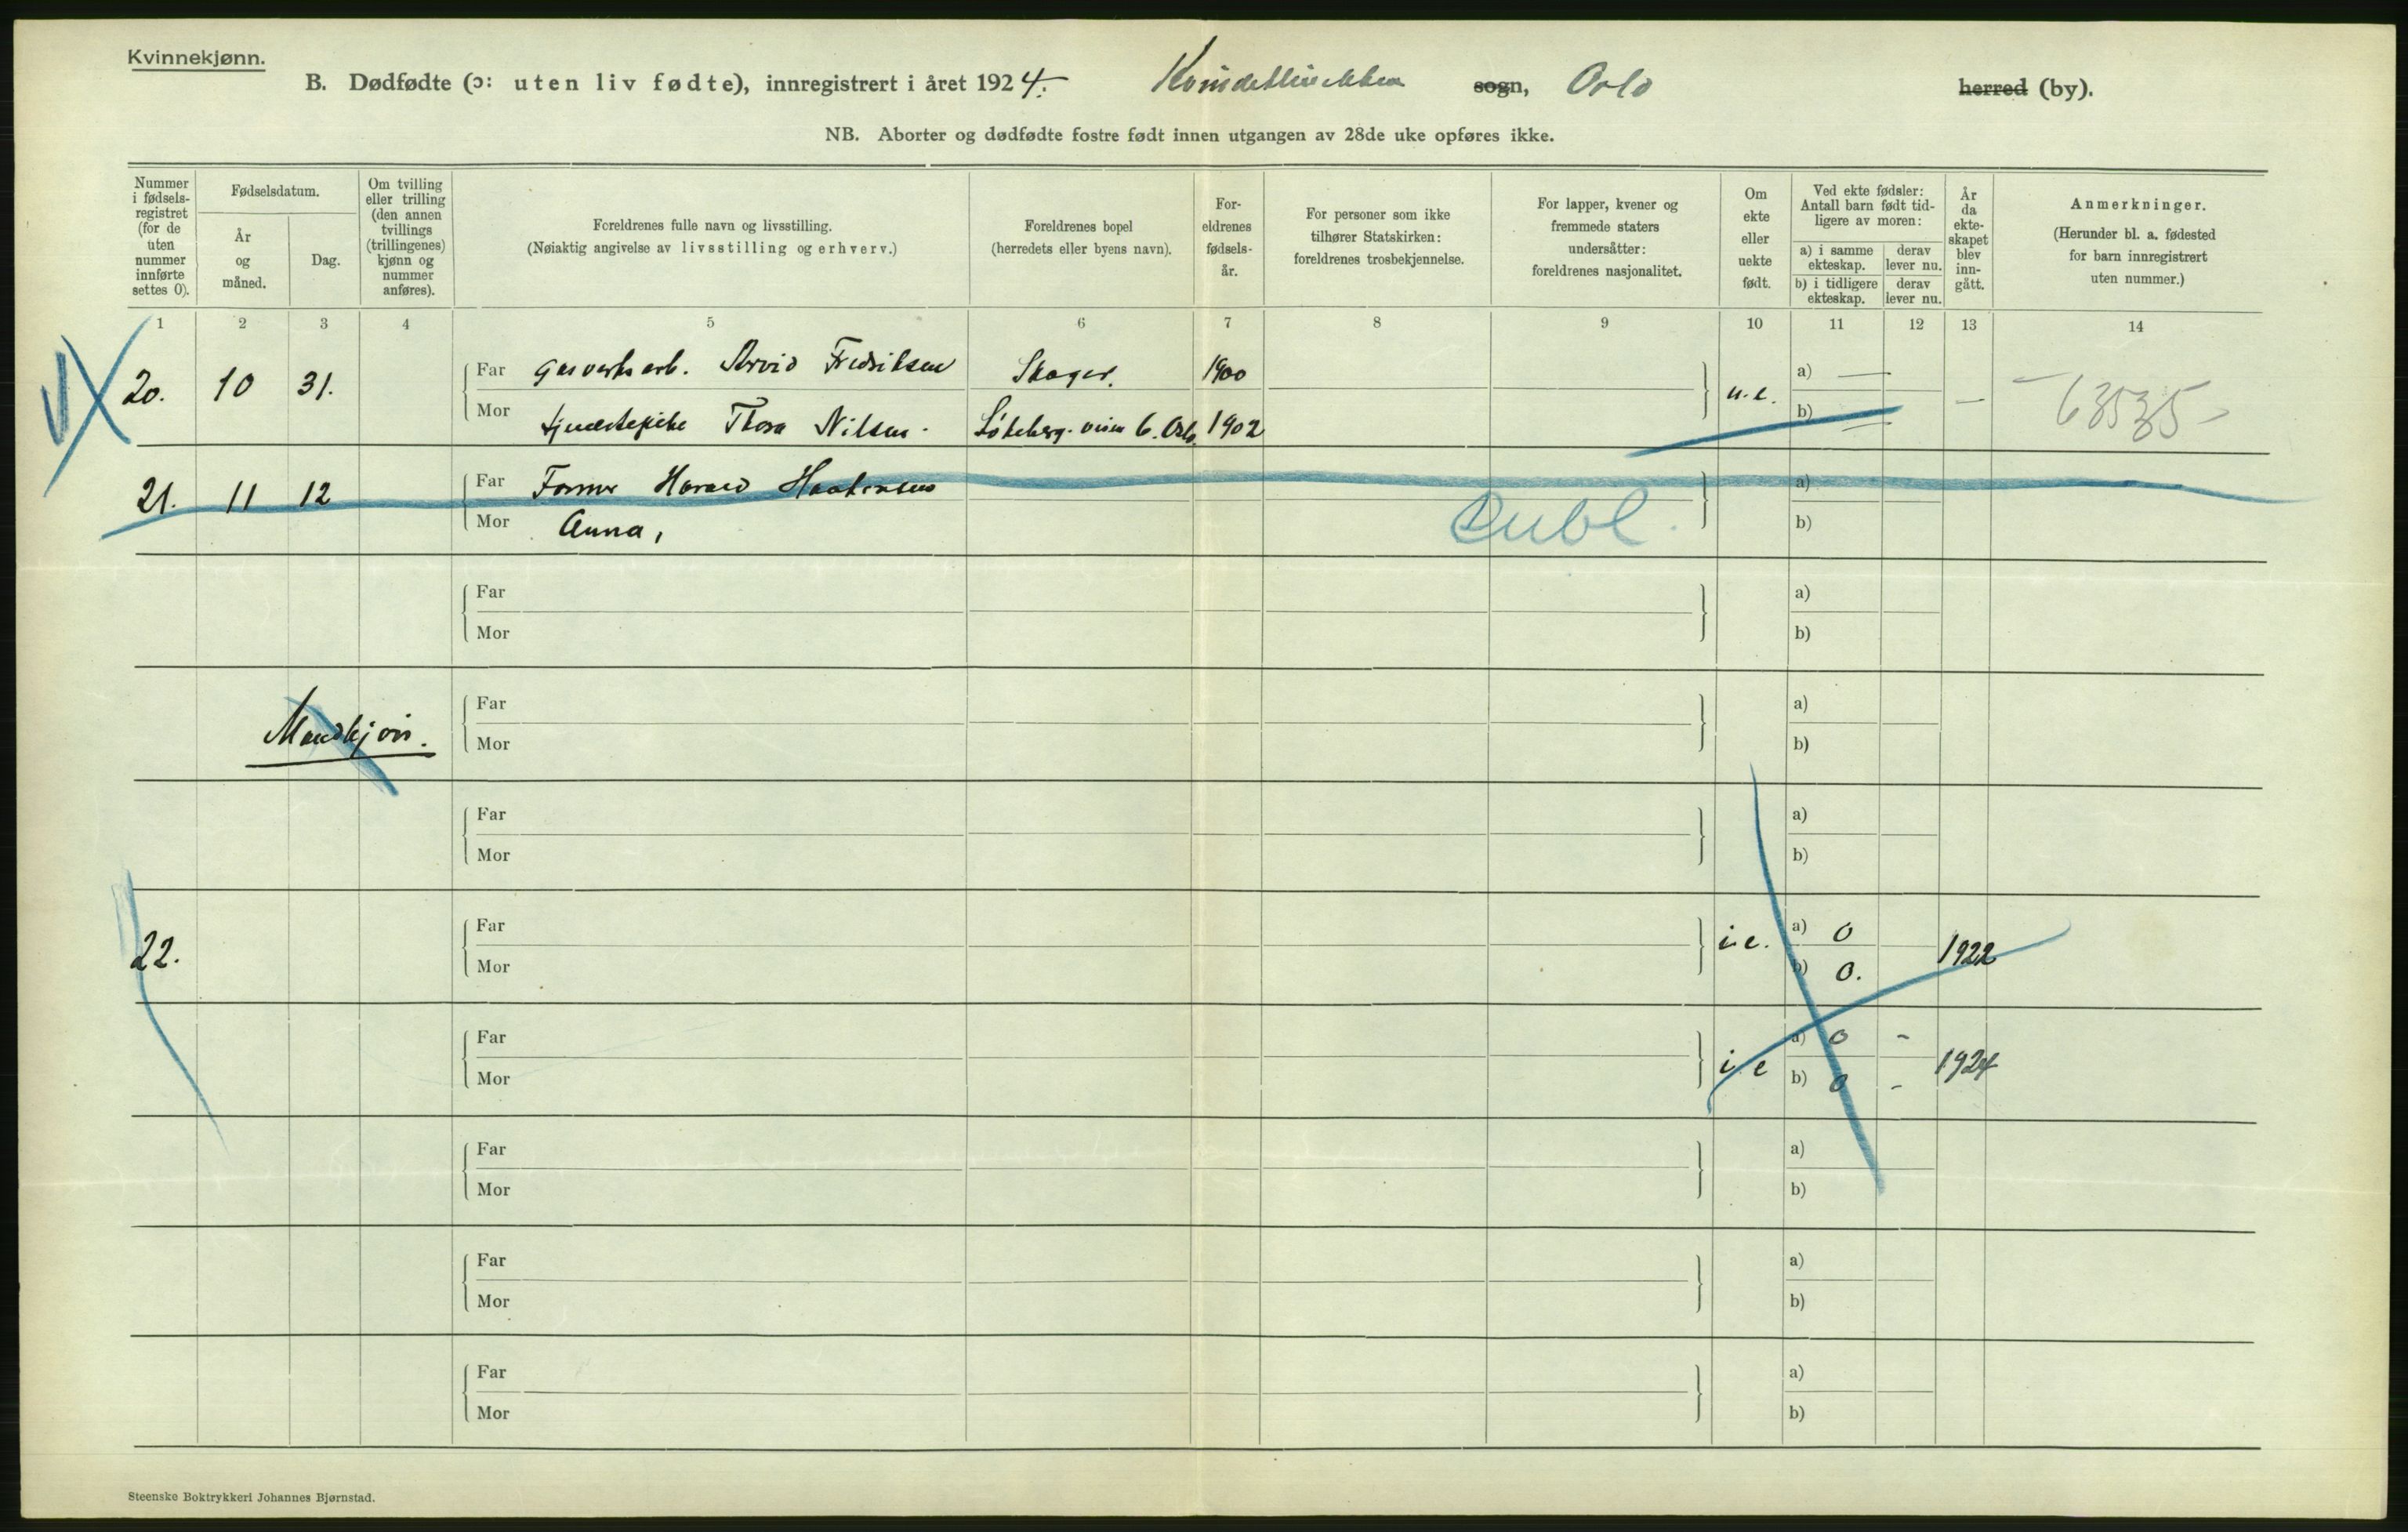 Kvinnekjønn.
B. Dødfødte (ɔ: uten liv fødte), innregistrert i året 1924. Kvindeklinikken sogn, Oslo herred (by).
NB. Aborter og dødfødte fostre født innen utgangen av 28de uke opføres ikke.
Nummer i fødsels-registret (for de uten nummer innførte settes 0).
Fødselsdatum.
År og måned.
Dag.
Om tvilling eller trilling (den annen tvillings (trillingenes) kjønn og nummer anføres).
Foreldrenes fulle navn og livsstilling.
(Nøiaktig angivelse av livsstilling og erhverv.)
Foreldrenes bopel
(herredets eller byens navn).
For-eldrenes fødsels-år.
For personer som ikke tilhører Statskirken: foreldrenes trosbekjennelse.
For lapper, kvener og fremmede staters undersåtter: foreldrenes nasjonalitet.
Om ekte eller uekte født.
Ved ekte fødsler: Antall barn født tid-ligere av moren:
a) i samme ekteskap.
derav lever nu.
b) i tidligere ekteskap.
derav lever nu.
År da ekte-skapet blev inn-gått.
Anmerkninger.
(Herunder bl. a. fødested for barn innregistrert uten nummer.)
1 2 3 4 5 6 7 8 9 10 11 12 13 14
20. 10 31. Far Gasverksarb. Arvid Fredriksen Skoger. 1900 u.e. a) — — 63535
Mor tjenestepike Thora Nilsen. 6. Oslo. 1902 b) —
21. 11 12 Far Former Harald a)
Mor Anna, Dubl. b)
Far a)
Mor b)
Mandkjøn.
Far a)
Mor b)
Far a)
Mor b)
22. Far i.e. a) 0 1922
Mor b) 0.
Far i e a) 0 - 1924
Mor b) 0 -
Far a)
Mor b)
Far a)
Mor b)
Far a)
Mor b)
Steenske Boktrykkeri Johannes Bjørnstad.